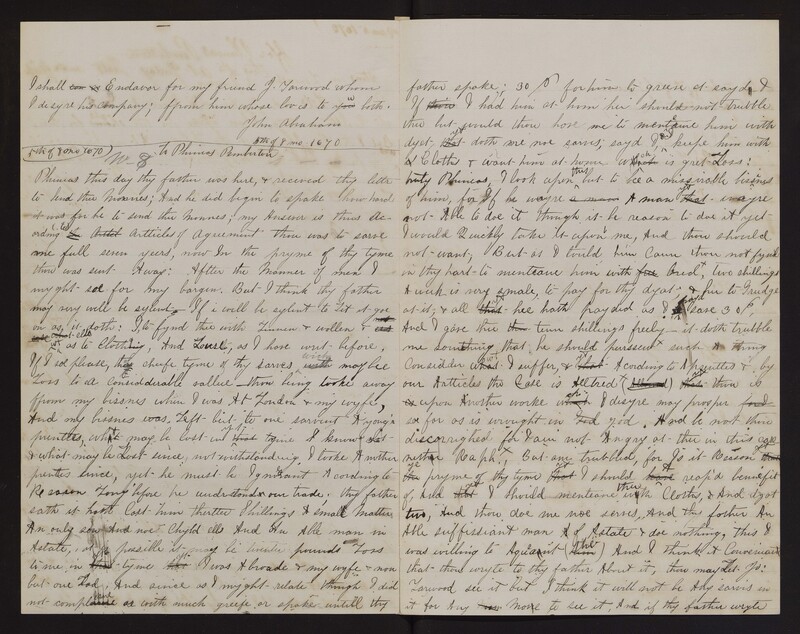 I shall Endavor for my friend J. Yarwood whom
I desyre his company; ffrom him whose love is to you both.
John Abraham
5th of 8 mo 1670
(5th of 8 mo 1670) to Phineas Pemberton
No 8
Phineas this day thy father was here, & received thy letter
to lend thee Monnies; And he did begin to spake how hard
it was for he to send thee Monnes; my Answer is thus Ac=
ording to Articles of Agreement thou was to sarve
me full seven yeers, now In the pryme of thy tyme
thou was sent Away: After the Manner of men I
myght sed for my bargen. But I think thy father
may very will be sylent. If I will be sylent to let it goe
on as it doth: I to fynd thee with Linnen & wollen &
as to Clothing, And Lowse, as I have wont before,
If I sod please, the cheefe tyme of thy sarves may bee
Loss to a Considderable vallue thou being tooke away
ffrom my bisnes when I was At London & my wyfe,
And my bisnes was Left but to one sarvent A yong
prenttes, what may be lost in tyme I know not
& what may be Lost since, notwithstanding I tooke Another
prentes since, yet he must be Ignorant Acording to
Reason Long before he understand our trade. thy father
sath it hath Cost him thertte Shillings A small Matter
An only son And noe Chyld ells And An Able man in
Astate, possible it may be twente pounds Loss
to me, in tyme I was Abroade & my wyfe & non
but one Lad, And since as I myght relate things I did
not complane or with much greefe or spake untill thy
father spake; 30 s for him to greeve at sayd I
If I had him at hom her should not trubble
thee but would thou have me to mentane him with
dyet, doth me noe sarves, sayd I, keepe him with
Cloths & want him at home which is gret Loss:
truly Phineas, I look upon this but to be a miserable bisnes
of him, for If he wayre A man that wayre
not Able to doe it though it be reason to doe it yet
I would Quickly take it upon me, And thou should
not want, But as I tould him Cann thou not fynd
in thy hart to mentane him with bred, two shillings
A wick is very smale, to pay for thy dyat: & for to Grudge
at it; & all that hee hath prayded as I sayth save 30 s,
And I gave thee tenn shillings freely it doth trubble
me something that he should pursent such A thing
Considder what I suffer, & that Acording to Aprenttes & by
our Artticles the Case is Alltred thou is
upon Another worke which I desyre may prosper
for as is wrought in god, And be not thou
discorriged for I am not Angry at thee in this case
nether Raph; but am trubbled, for Is it Reason
pryme of thy tyme that I should reap'd bennefit
of and I should mentane thee with Cloths, & And dyat
And thou doe me noe serves, And thy father An
Able suffissiant man of Astate & doe nothing, this I
was willing to Aquaint And I think it Convenient
that thou wryte to thy father About it, thou may let Jo:
Yarwood see it but I think it will not be Any sarvis in
it for Any More to see it, And if thy father wryte